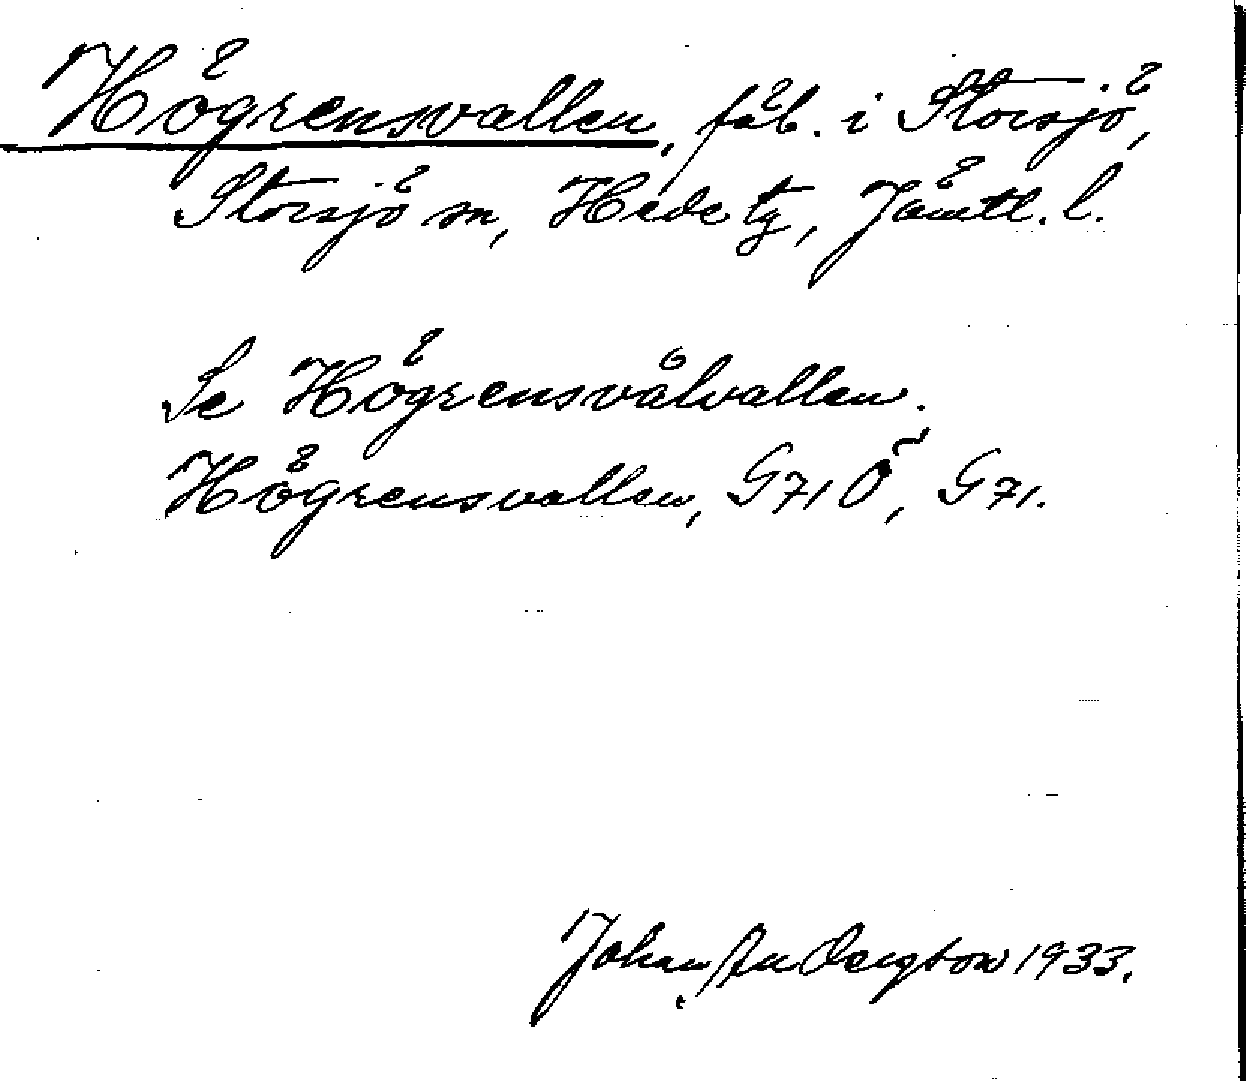 Högrensvallen, fäb. i Storsjö,
Storsjö sn, Hede tg, Jämtl. l.
Se Högrensvålvallen.
Högrensvallen, G71 Ö, G71.
Johan 1933.